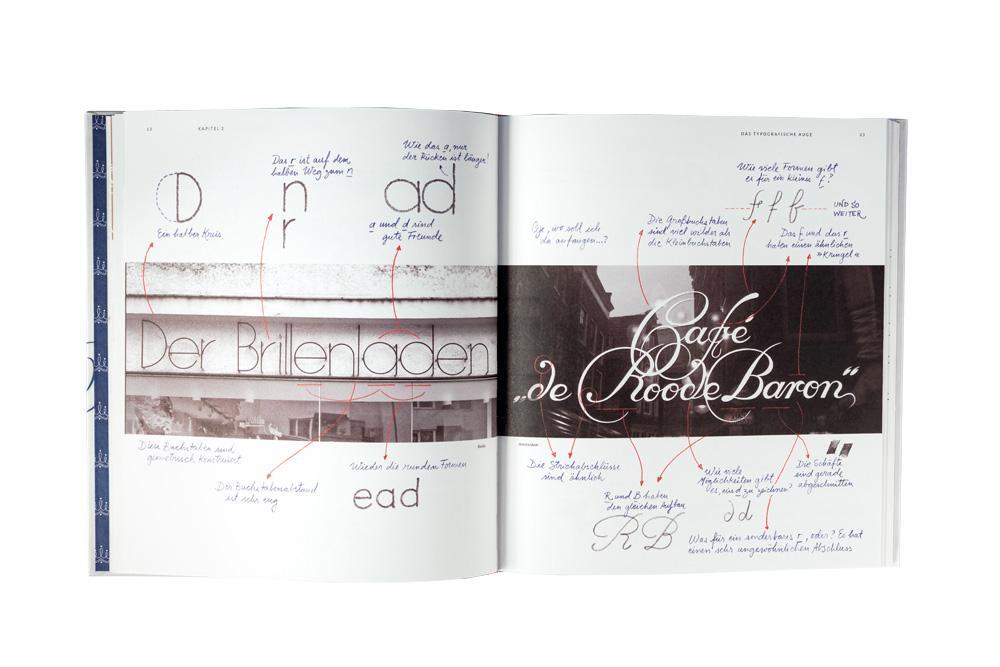 22 KAPITEL 2
Das r ist auf dem
halben Weg zum n
Wie das a, nur
der Rücken ist länger!
D
n
r
ad
Ein halber Kreis
a und d sind
gute Freunde
Der Brillenladen
Berlin
Diese Buchstaben sind
geometrisch konstruiert
Der Buchstabenabstand
ist sehr eng
Wieder die runden Formen
ead
DAS TYPOGRAFISCHE AUGE 23
Wie viele Formen gibt
es für ein kleines f?
f f f
UND SO
WEITER
Oje, wo soll ich
da anfangen...?
Die Großbuchstaben
sind viel wilder als
die Kleinbuchstaben
Das f und das r
haben einen ähnlichen
»Kringel«
Café
„de Roode Baron“
Amsterdam
Die Strichabschlüsse
sind ähnlich
R und B haben
den gleichen Aufbau
R B
Wie viele
Möglichkeiten gibt
es, ein d zu zeichnen?
d d
Die Schäfte
sind gerade
abgeschnitten
Was für ein sonderbares r, oder? Es hat
einen sehr ungewöhnlichen Abschluss